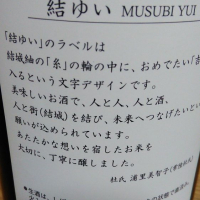 結ゆい MUSUBI YUI
「結ゆい」のラベルは
結城紬の「糸」の輪の中に、おめでたい「吉
入るという文字デザインです。
美味しいお酒で、人と人、人と酒、
人と街(結城)を結び、未来へつなげたいとい
願いが込められています。
あたたかな想いを宿したお米を
大切に、丁寧に醸しました。
杜氏 浦里美智子